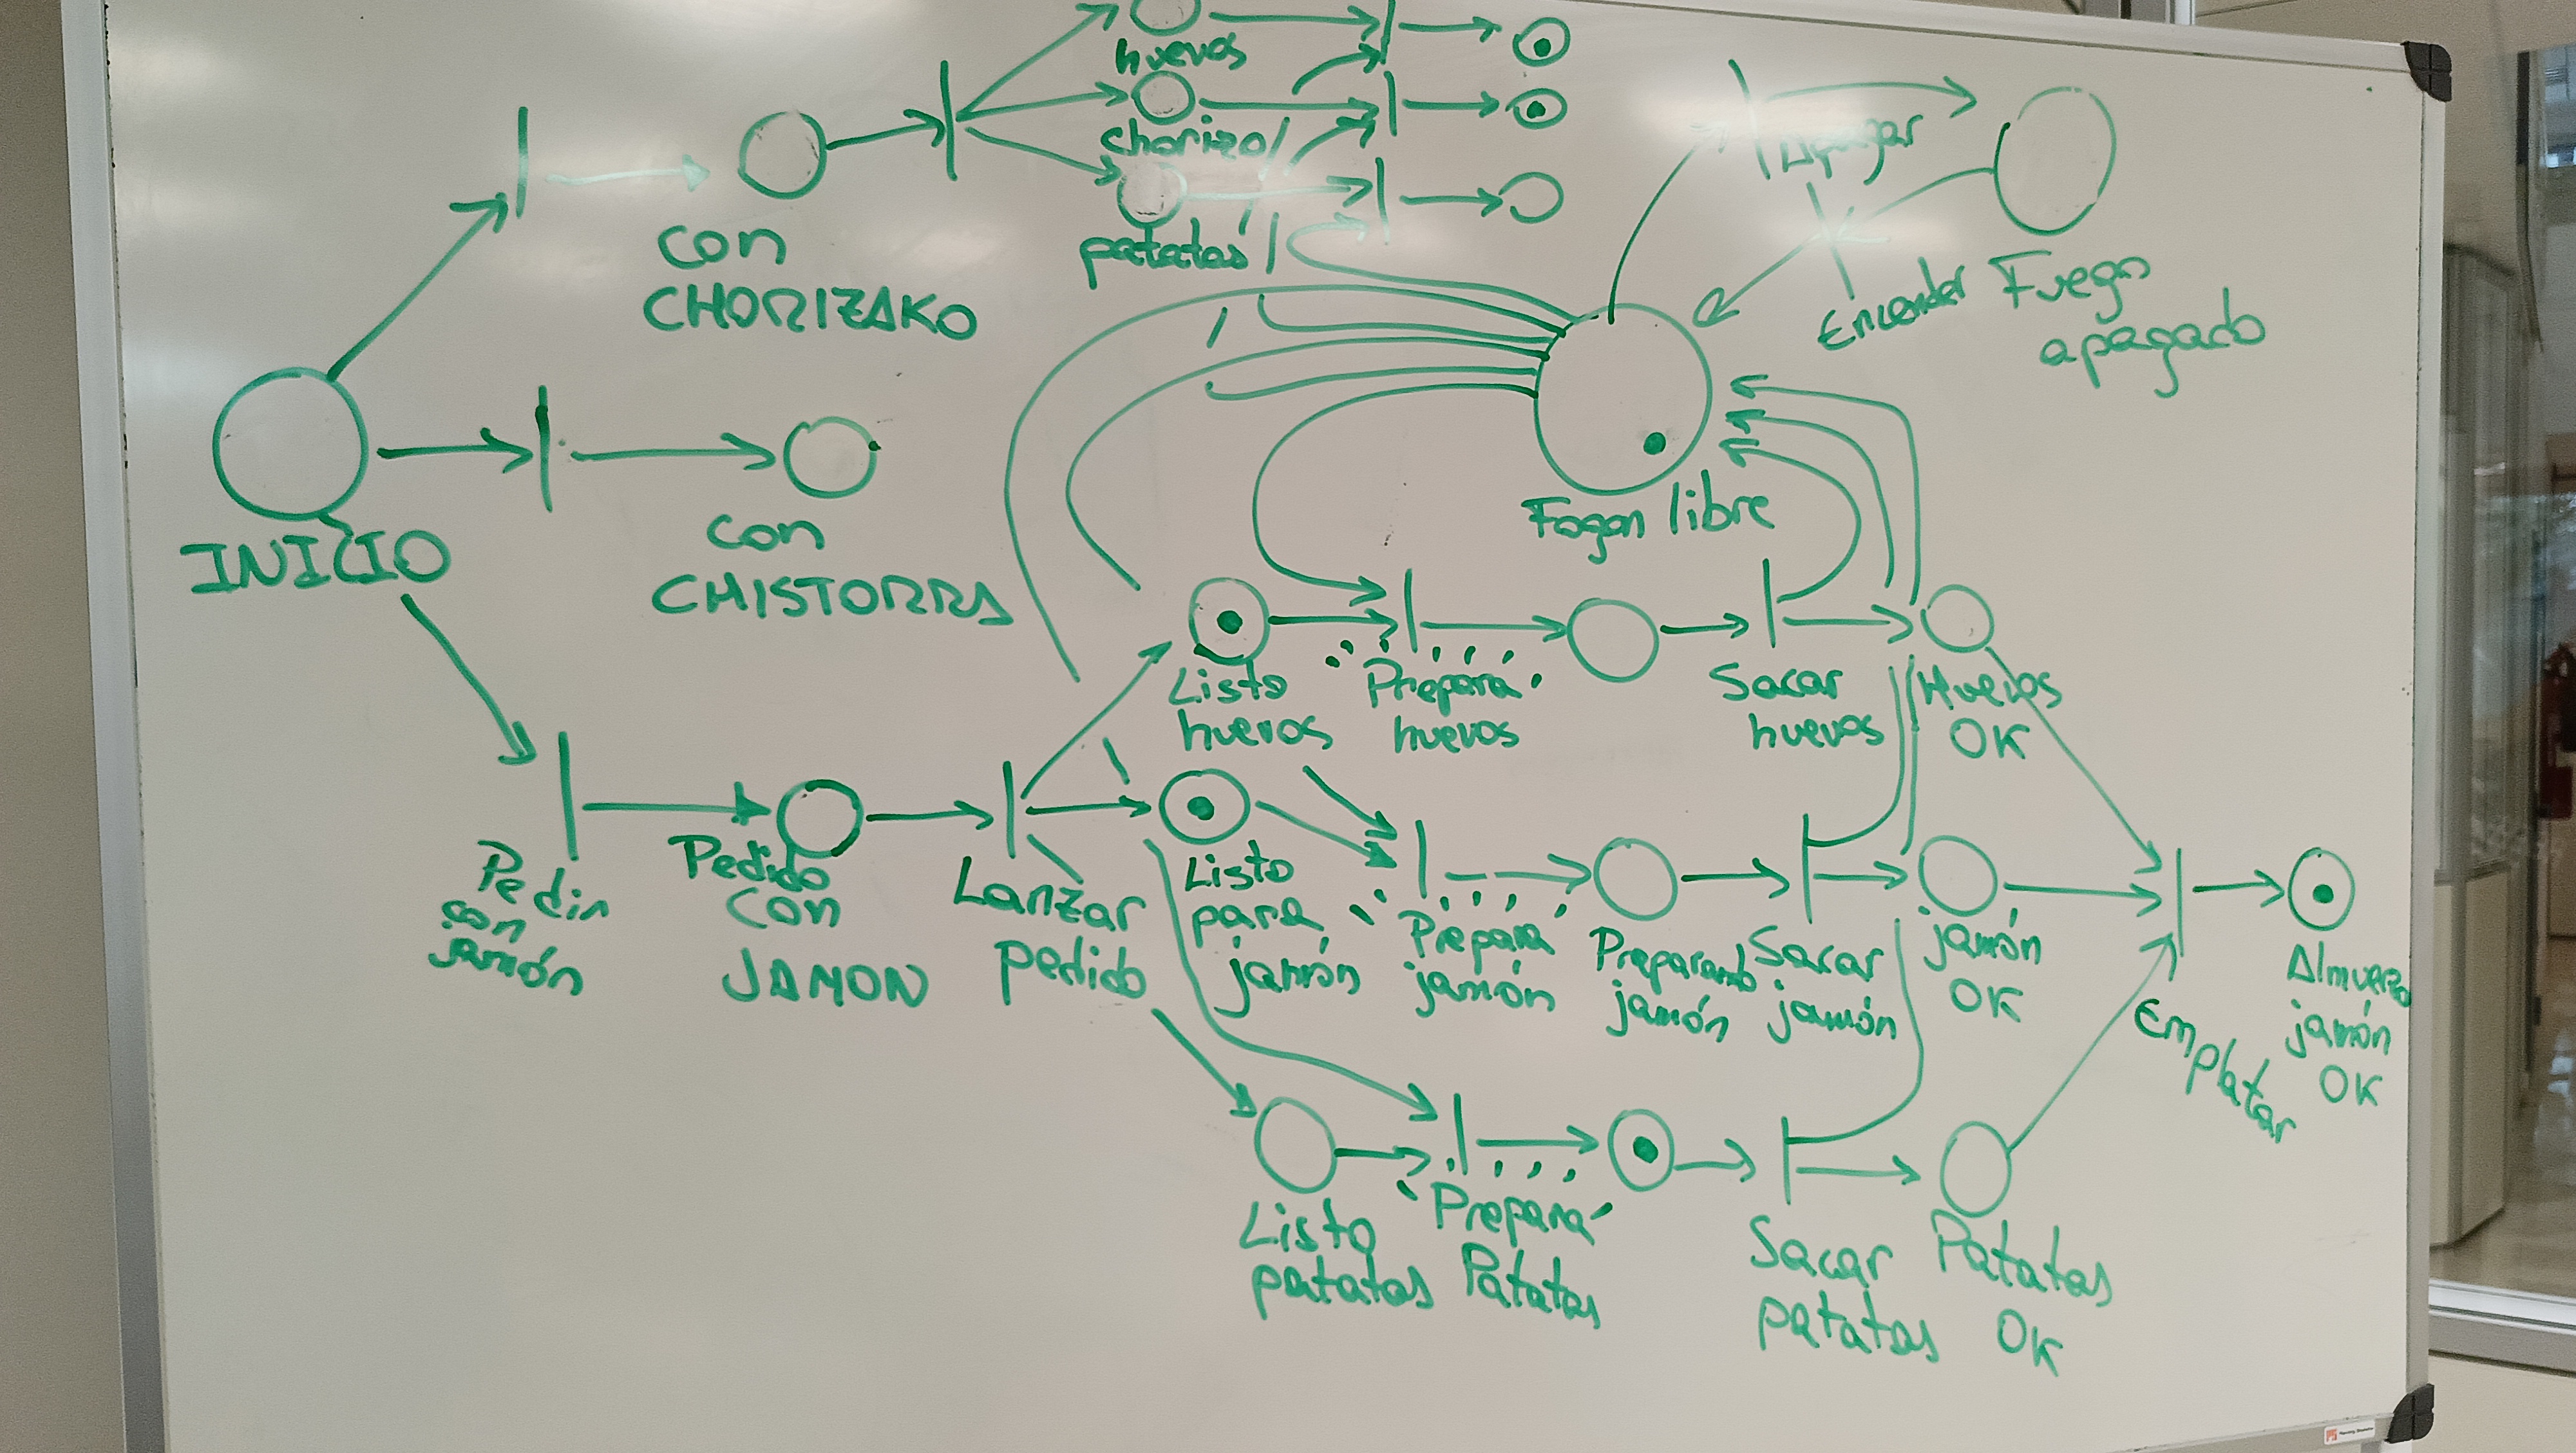 huevos
chorizo
patatas
Apagar
Encender
Fuego
apagado
con
CHORIZAKO
INICIO
con
CHISTORRA
Fogon libre
Listo
huevos
"Prepara"
huevos
Sacar
huevos
Huevos
OK
Pedir
con
jamón
Pedido
con
JAMON
Lanzar
pedido
Listo
para
jamón
"Prepara"
jamón
Preparando
jamón
Sacar
jamón
jamón
OK
Emplatar
Almuerzo
jamón
OK
Listo
patatas
"Prepara"
Patatas
Sacar
patatas
Patatas
OK